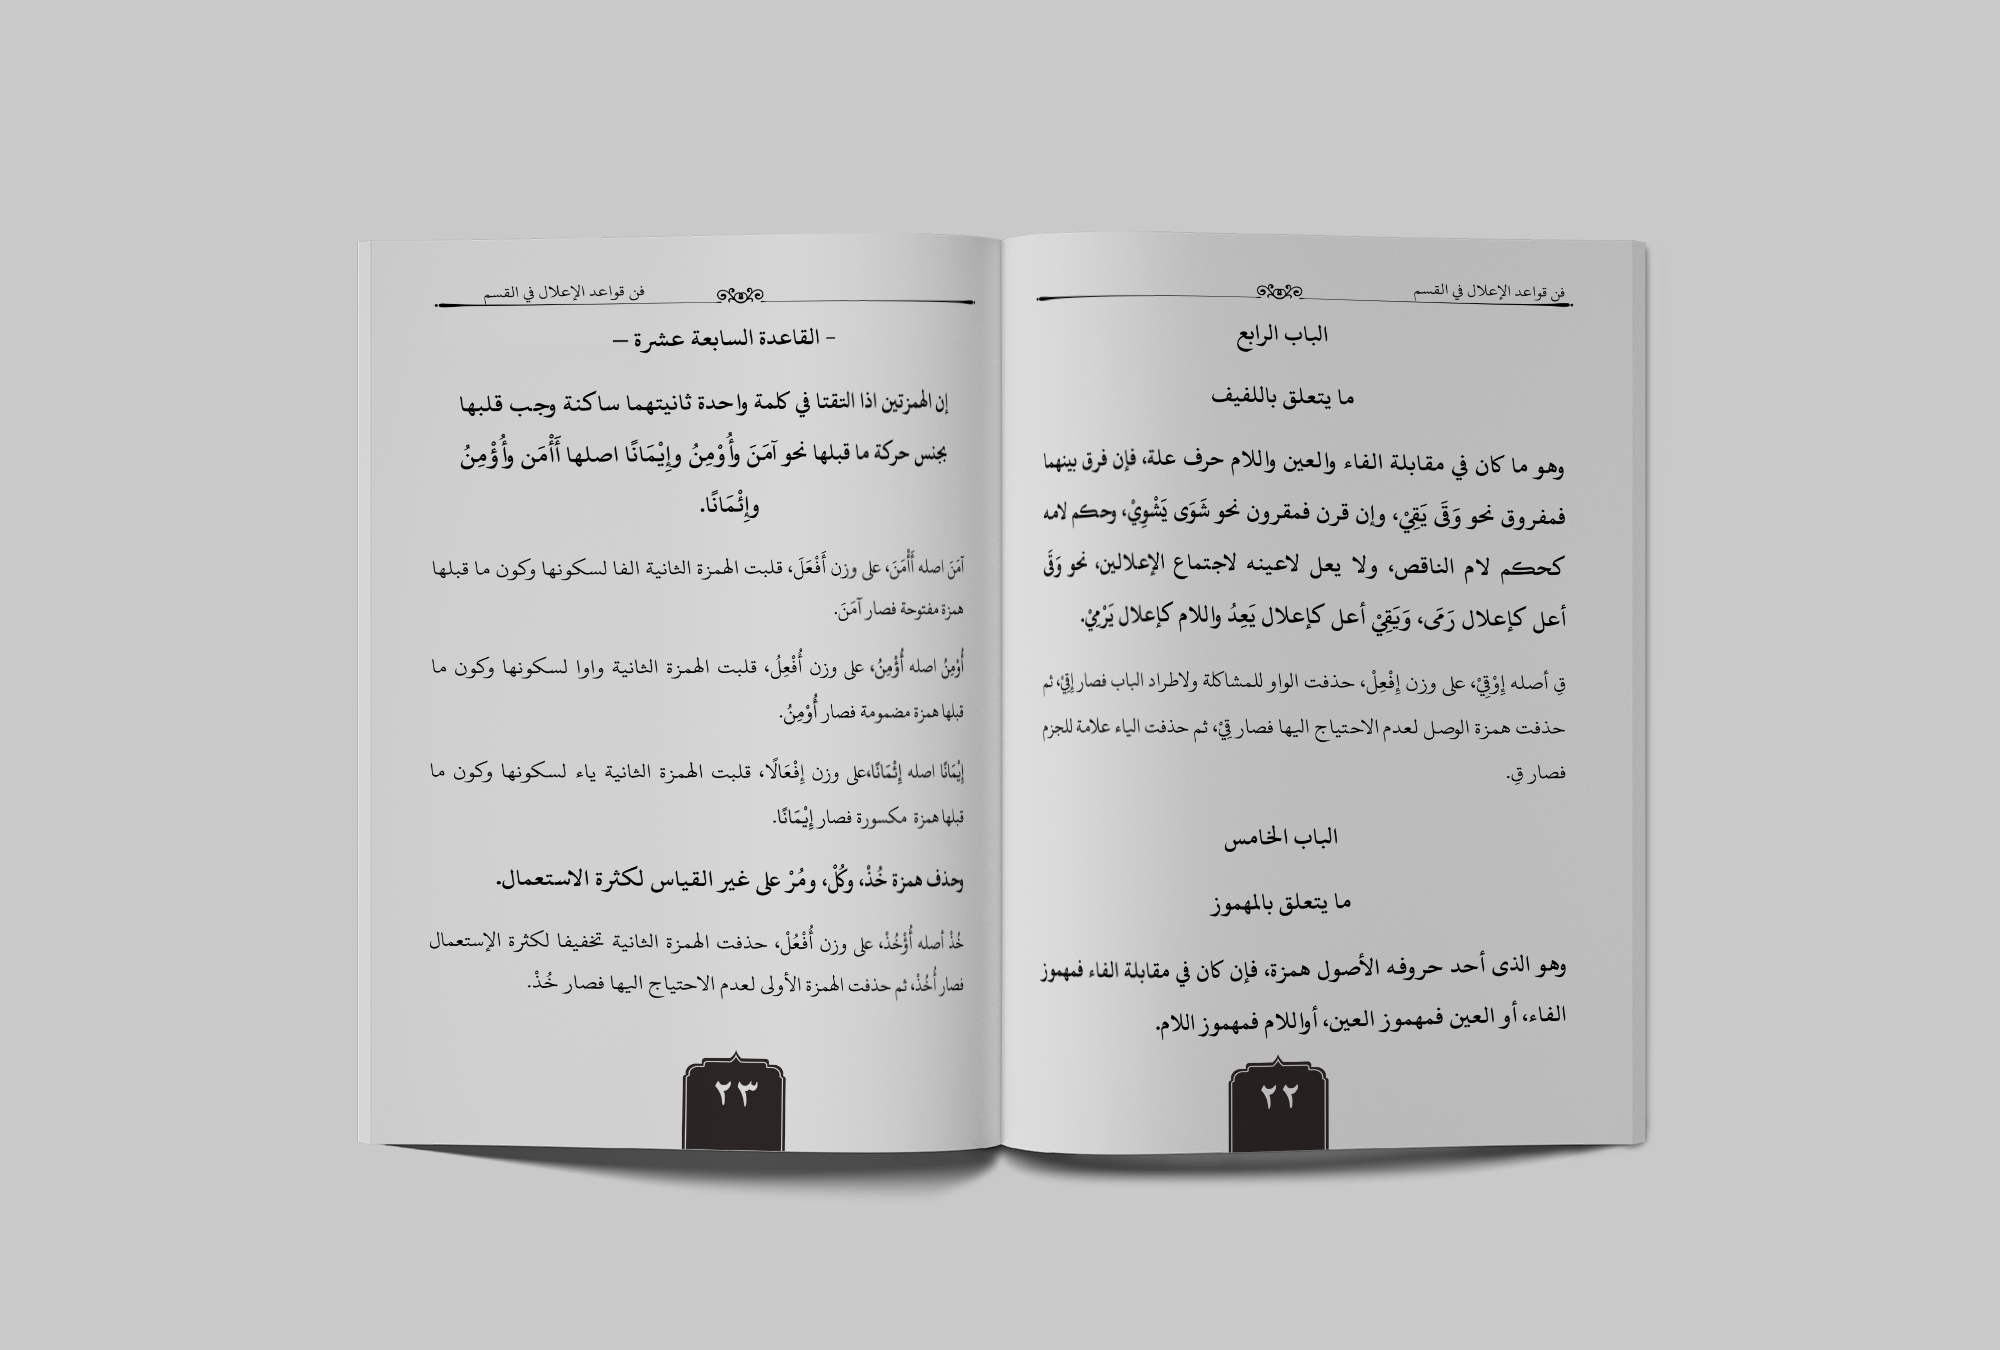 فن قواعد الإعلال في القسم
الباب الرابع
ما يتعلق باللفيف
وهو ما كان في مقابلة الفاء والعين واللام حرف علة، فإن فرق بينهما
فمفروق نحو وَقَى يَقِيْ، وإن قرن فمقرون نحو شَوَى يَشْوِيْ، وحكم لامه
كحكم لام الناقص، ولا يعل لاعينه لاجتماع الإعلالين، نحو وَقَى
أعل كإعلال رَمَى، وَيَقِيْ أعل كإعلال يَعِدُ واللام كإعلال يَرْمِيْ.
قِ أصله إِوْقِيْ، على وزن إِفْعِلْ، حذفت الواو للمشاكلة ولاطراد الباب فصار إِقِيْ، ثم
حذفت همزة الوصل لعدم الاحتياج اليها فصار قِيْ، ثم حذفت الياء علامة للجزم
فصار قِ.
الباب الخامس
ما يتعلق بالمهموز
وهو الذى أحد حروفه الأصول همزة، فإن كان في مقابلة الفاء فمهموز
الفاء، أو العين فمهموز العين، أواللام فمهموز اللام.
٢٢
فن قواعد الإعلال في القسم
– القاعدة السابعة عشرة –
إن الهمزتين اذا التقتا في كلمة واحدة ثانيتهما ساكنة وجب قلبها
بجنس حركة ما قبلها نحو آمَنَ وأُوْمِنُ وإِيْمَانًا اصلها أَأْمَن وأُؤْمِنُ
وإِئْمَانًا.
آمَنَ اصله أَأْمَنَ، على وزن أَفْعَلَ، قلبت الهمزة الثانية الفا لسكونها وكون ما قبلها
همزة مفتوحة فصار آمَنَ.
أُوْمِنُ اصله أُؤْمِنُ، على وزن أُفْعِلُ، قلبت الهمزة الثانية واوا لسكونها وكون ما
قبلها همزة مضمومة فصار أُوْمِنُ.
إِيْمَانًا اصله إِئْمَانًا،على وزن إِفْعَالًا، قلبت الهمزة الثانية ياء لسكونها وكون ما
قبلها همزة مكسورة فصار إِيْمَانًا.
وحذف همزة خُذْ، وكُلْ، ومُرْ على غير القياس لكثرة الاستعمال.
خُذْ أصله أُؤْخُذْ، على وزن أُفْعُلْ، حذفت الهمزة الثانية تخفيفا لكثرة الإستعمال
فصار أُخُذْ، ثم حذفت الهمزة الأولى لعدم الاحتياج اليها فصار خُذْ.
٢٣